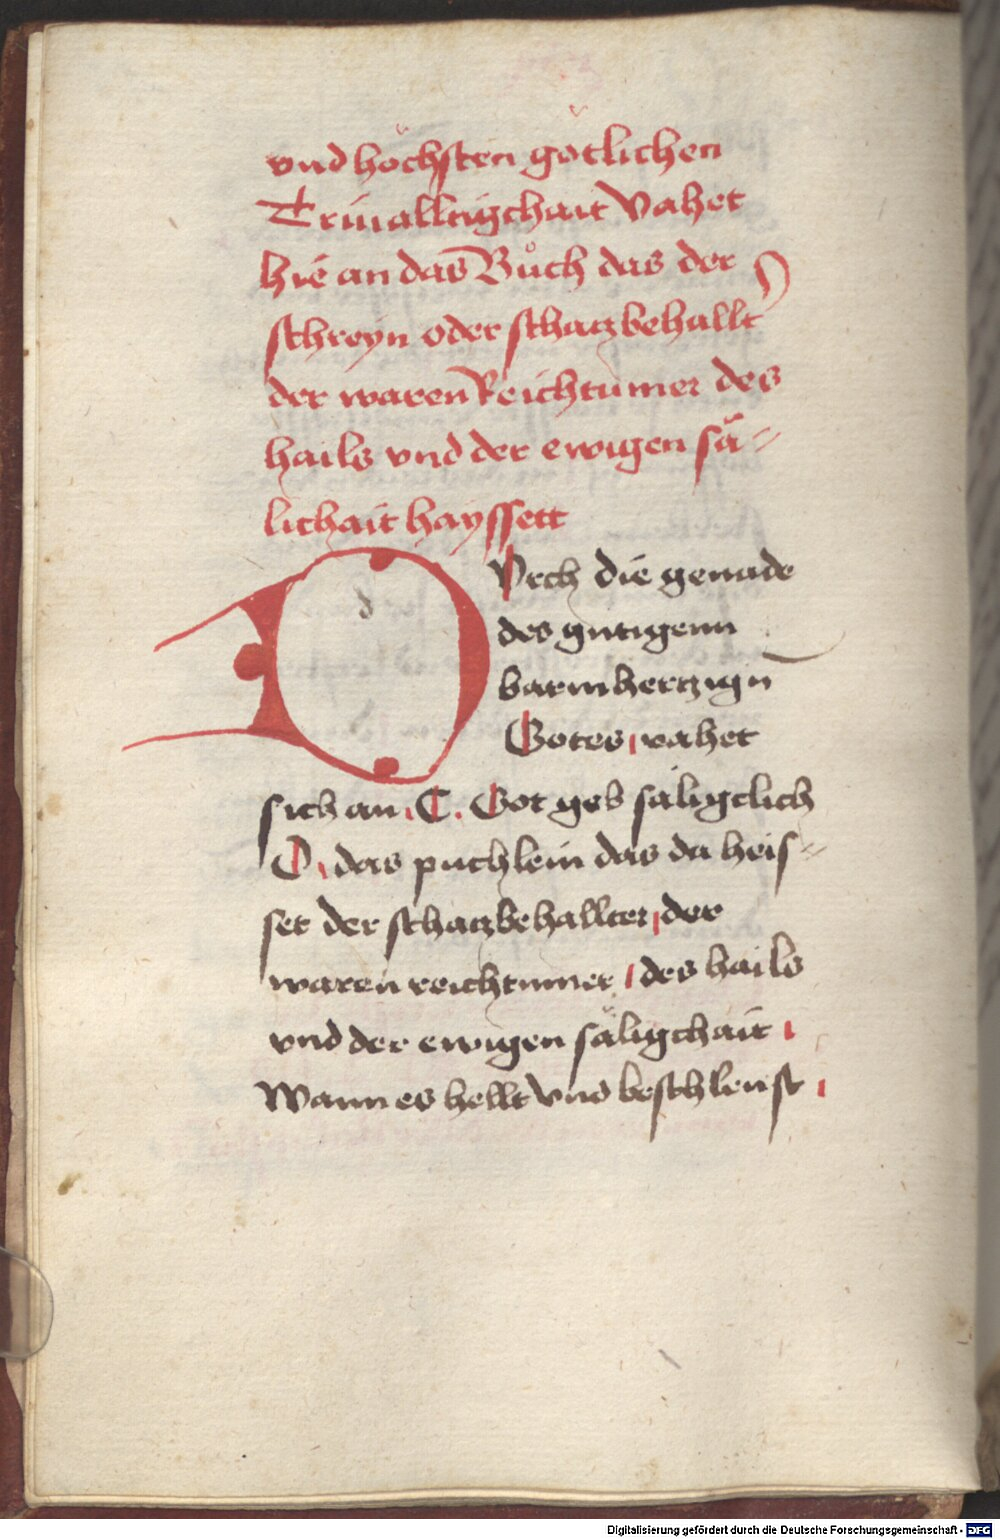 vnd höchsten götlichen
Triualltigchait Vahet
hie an das Bůch das der
schreyn oder schatzbehallt
der waren Reichtumer des
hails vnd der ewigen sä-
lichait hayssett
DVrch die genade
des gutigenn
barmhertzign̄
Gotes vahet
sich an . C . Got geb säligclich
O das puchlein das da heis-
set der schatzbehallter der
waren reichtumer des hails
vnd der ewigen säligchait
Wann es hellt vns beschlenst
Digitalisierung gefördert durch die Deutsche Forschungsgemeinschaft - DFG